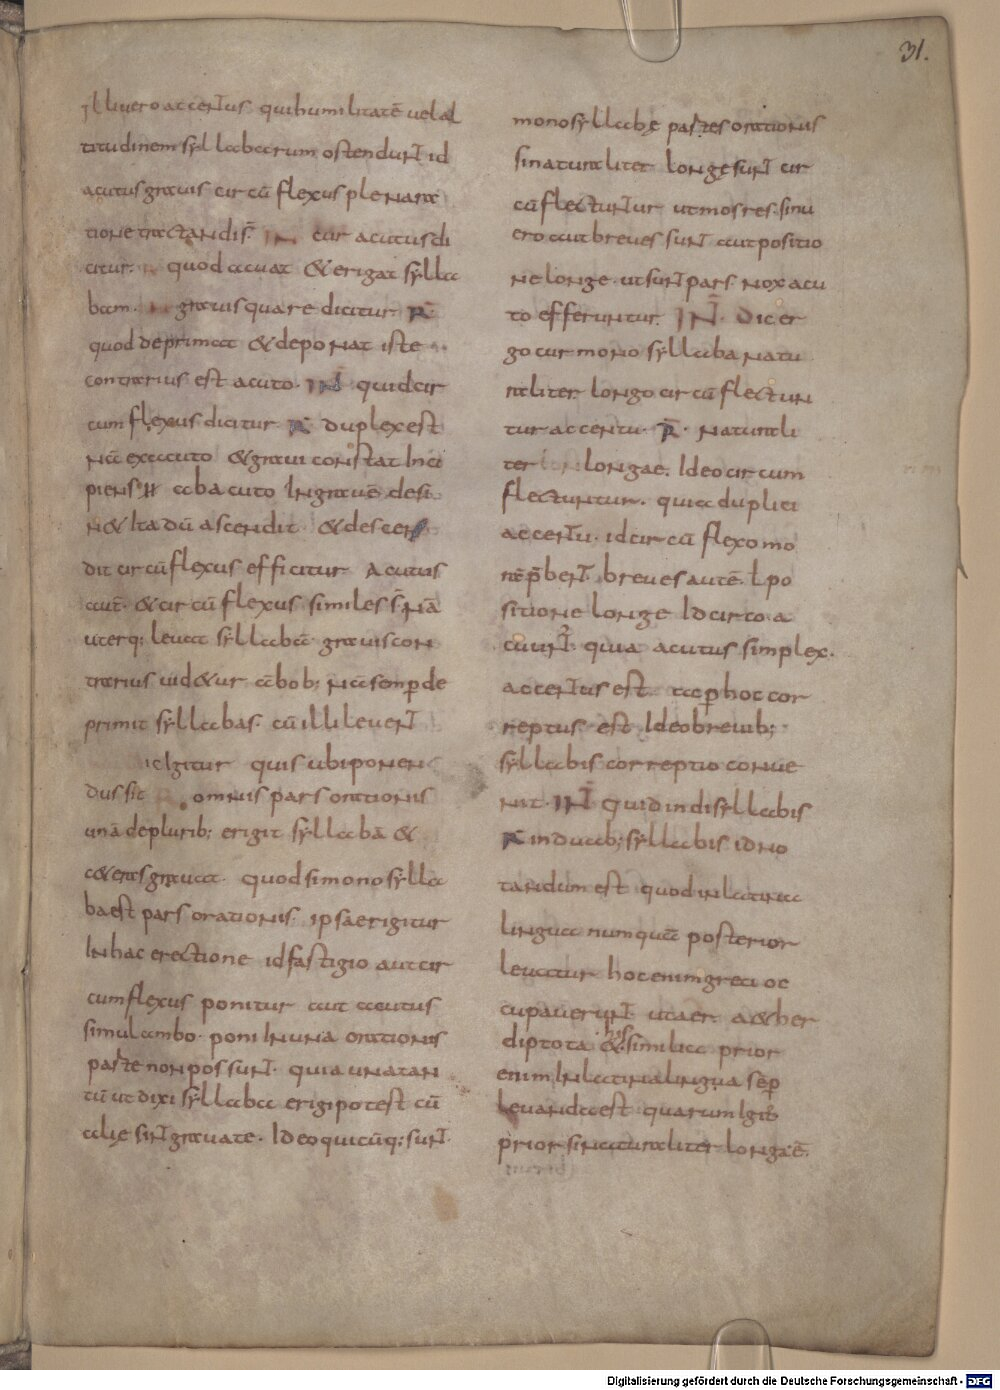 31.
illi vero accentus qui humilitatē vel al
titudinem syllabarum ostendunt id
acutus gravis circū flexus plena ra
tione tractandis. IN cur acutus di
citur. quod acuat & erigat sylla
bam. gravis quare dicitur R̄
quod deprimat & deponat iste
contrarius est acuto. IN̄ quid cir
cum flexus dicitur R̄ duplex est
nā ex acuto & gravi constat Inci
piens II ab acuto In gravē desi
n& Ita dū ascendit & descen
dit circū flexus efficitur Acutus
aut̄. & circū flexus similes s̄ nā
uterq; levat syllabā gravis con
trarius vid&ur ābob; nā semp̄ de
primit syllabas. cū illi levent
Igitur quis ubi ponen
dus sit omnis pars orationis
unā de plurib; erigit syllabā &
c&eras gravat. quod si monosylla
ba est pars orationis. ipsa erigitur
In hac erectione id fastigio aut cir
cum flexus ponitur aut acutus
simul ambo. poni In una orationis
parte non possunt. quia una tan
tū ut dixi syllaba erigi potest cū
alię sint gravate. Ideo quicūq; sunt
monosyllabę partes orationis
si naturaliter longę sunt cir
cū flectuntur ut mos res. si nu
ero aut breves sunt aut positio
ne longe. ut sunt pars. nox acu
to efferuntur. IN̄. Dic er
go cur mono syllaba natu
raliter longo circū flectun
tur accentu. R̄. Naturali
ter longae. Ideo circum
flectuntur. quia duplici
accentu. id circū flexo mo
nēp̄bent. breves autē. l po
sitione longe Idcirco a
cuunt̄. quia acutus simplex.
accentus est. ac p hoc cor
reptus est Ideo brevib;
syllabis correptio conve
nit. IN̄ Quid in disyllabis
R̄ in duab; syllabis id no
tandum est quod in latina
lingua numquā posterior
levatur hoc enim greci oc
cupaverunt. ut aer. a&her
diptota &his similia prior
enim In latina lingua sēp
levanda est quarum Igit̄
prior si naturaliter longa ē.